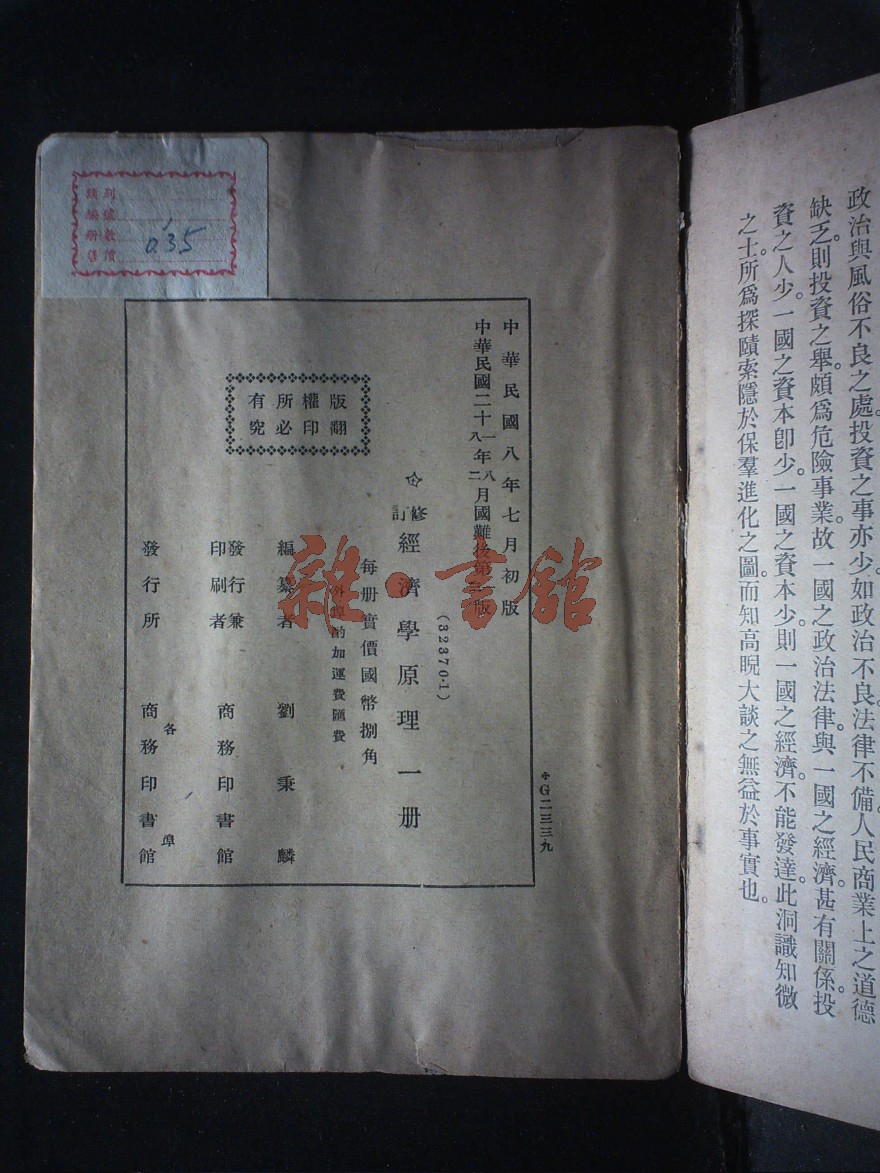 政治與風俗不良之處。投資之事亦少。如政治不良。法律不備。人民商業上之道德
缺乏。則投資之舉。頗爲危險事業。故一國之政治法律。與一國之經濟。甚有關係。投
資之人少。一國之資本卽少。一國之資本少。則一國之經濟。不能發達。此洞識知微
之士。所爲探賾索隱於保羣進化之圖。而知高睨大談之無益於事實也。
類別
編號
册數 1
售價 0.35
G二三三九
中華民國八年七月初版
中華民國二十一年八月國難後第
八 二
版
(32370·1)
修訂 經濟學原理一册
每册實價國幣捌角
外埠酌加運費匯費
版權所有
翻印必究
編纂者 劉秉麟
發行兼印刷者 商務印書館
發行所 各埠 商務印書館
雜·書館